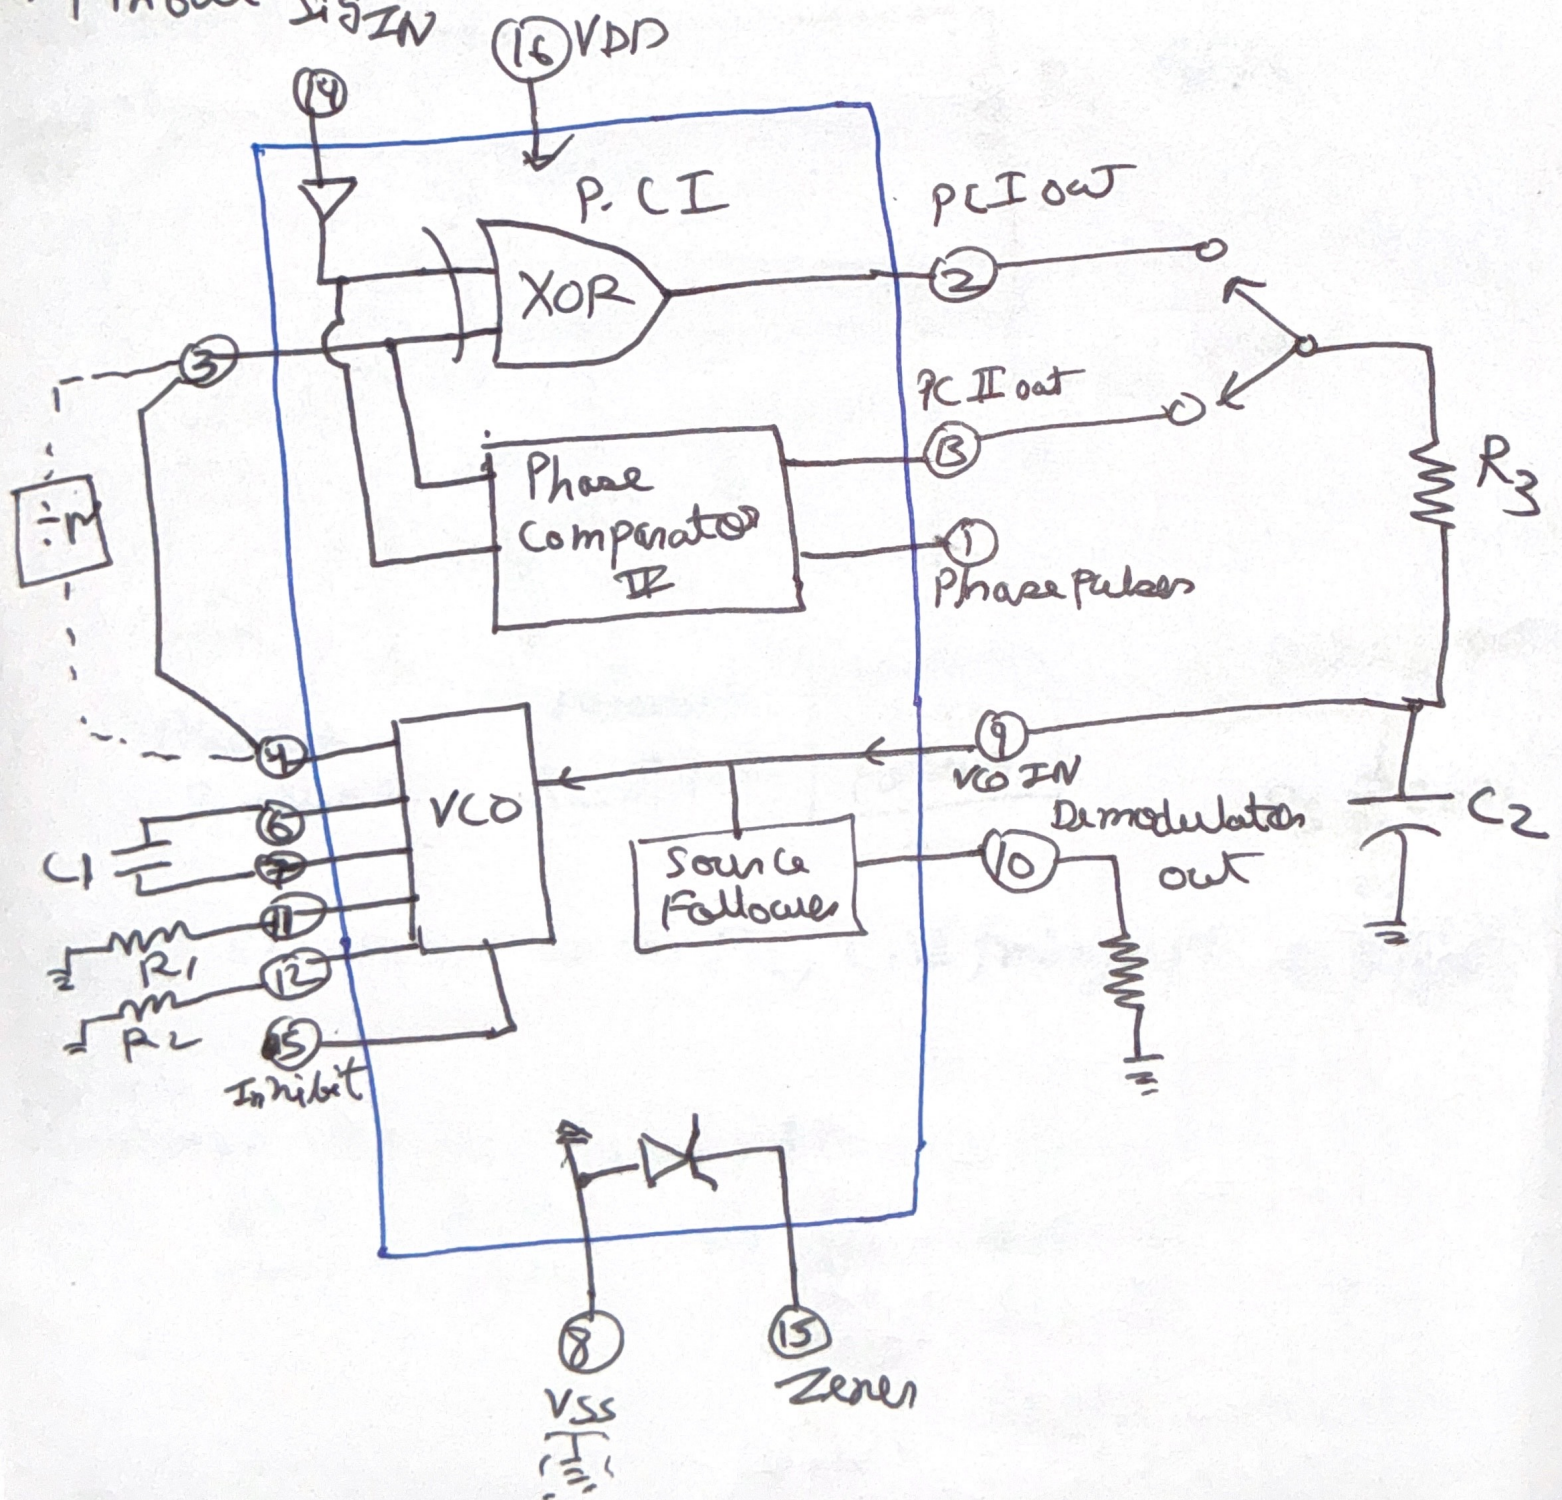 Sig IN
16 VDD
14
P. C I
PC I out
XOR
2
3
PC II out
÷N
Phase
Comparator
II
13
1
Phase Pulses
R3
4
9
VCO IN
VCO
6
C1
7
11
R1
12
R2
15
Inhibit
Source
Follower
10
Demodulator
out
C2
8
VSS
15
Zener